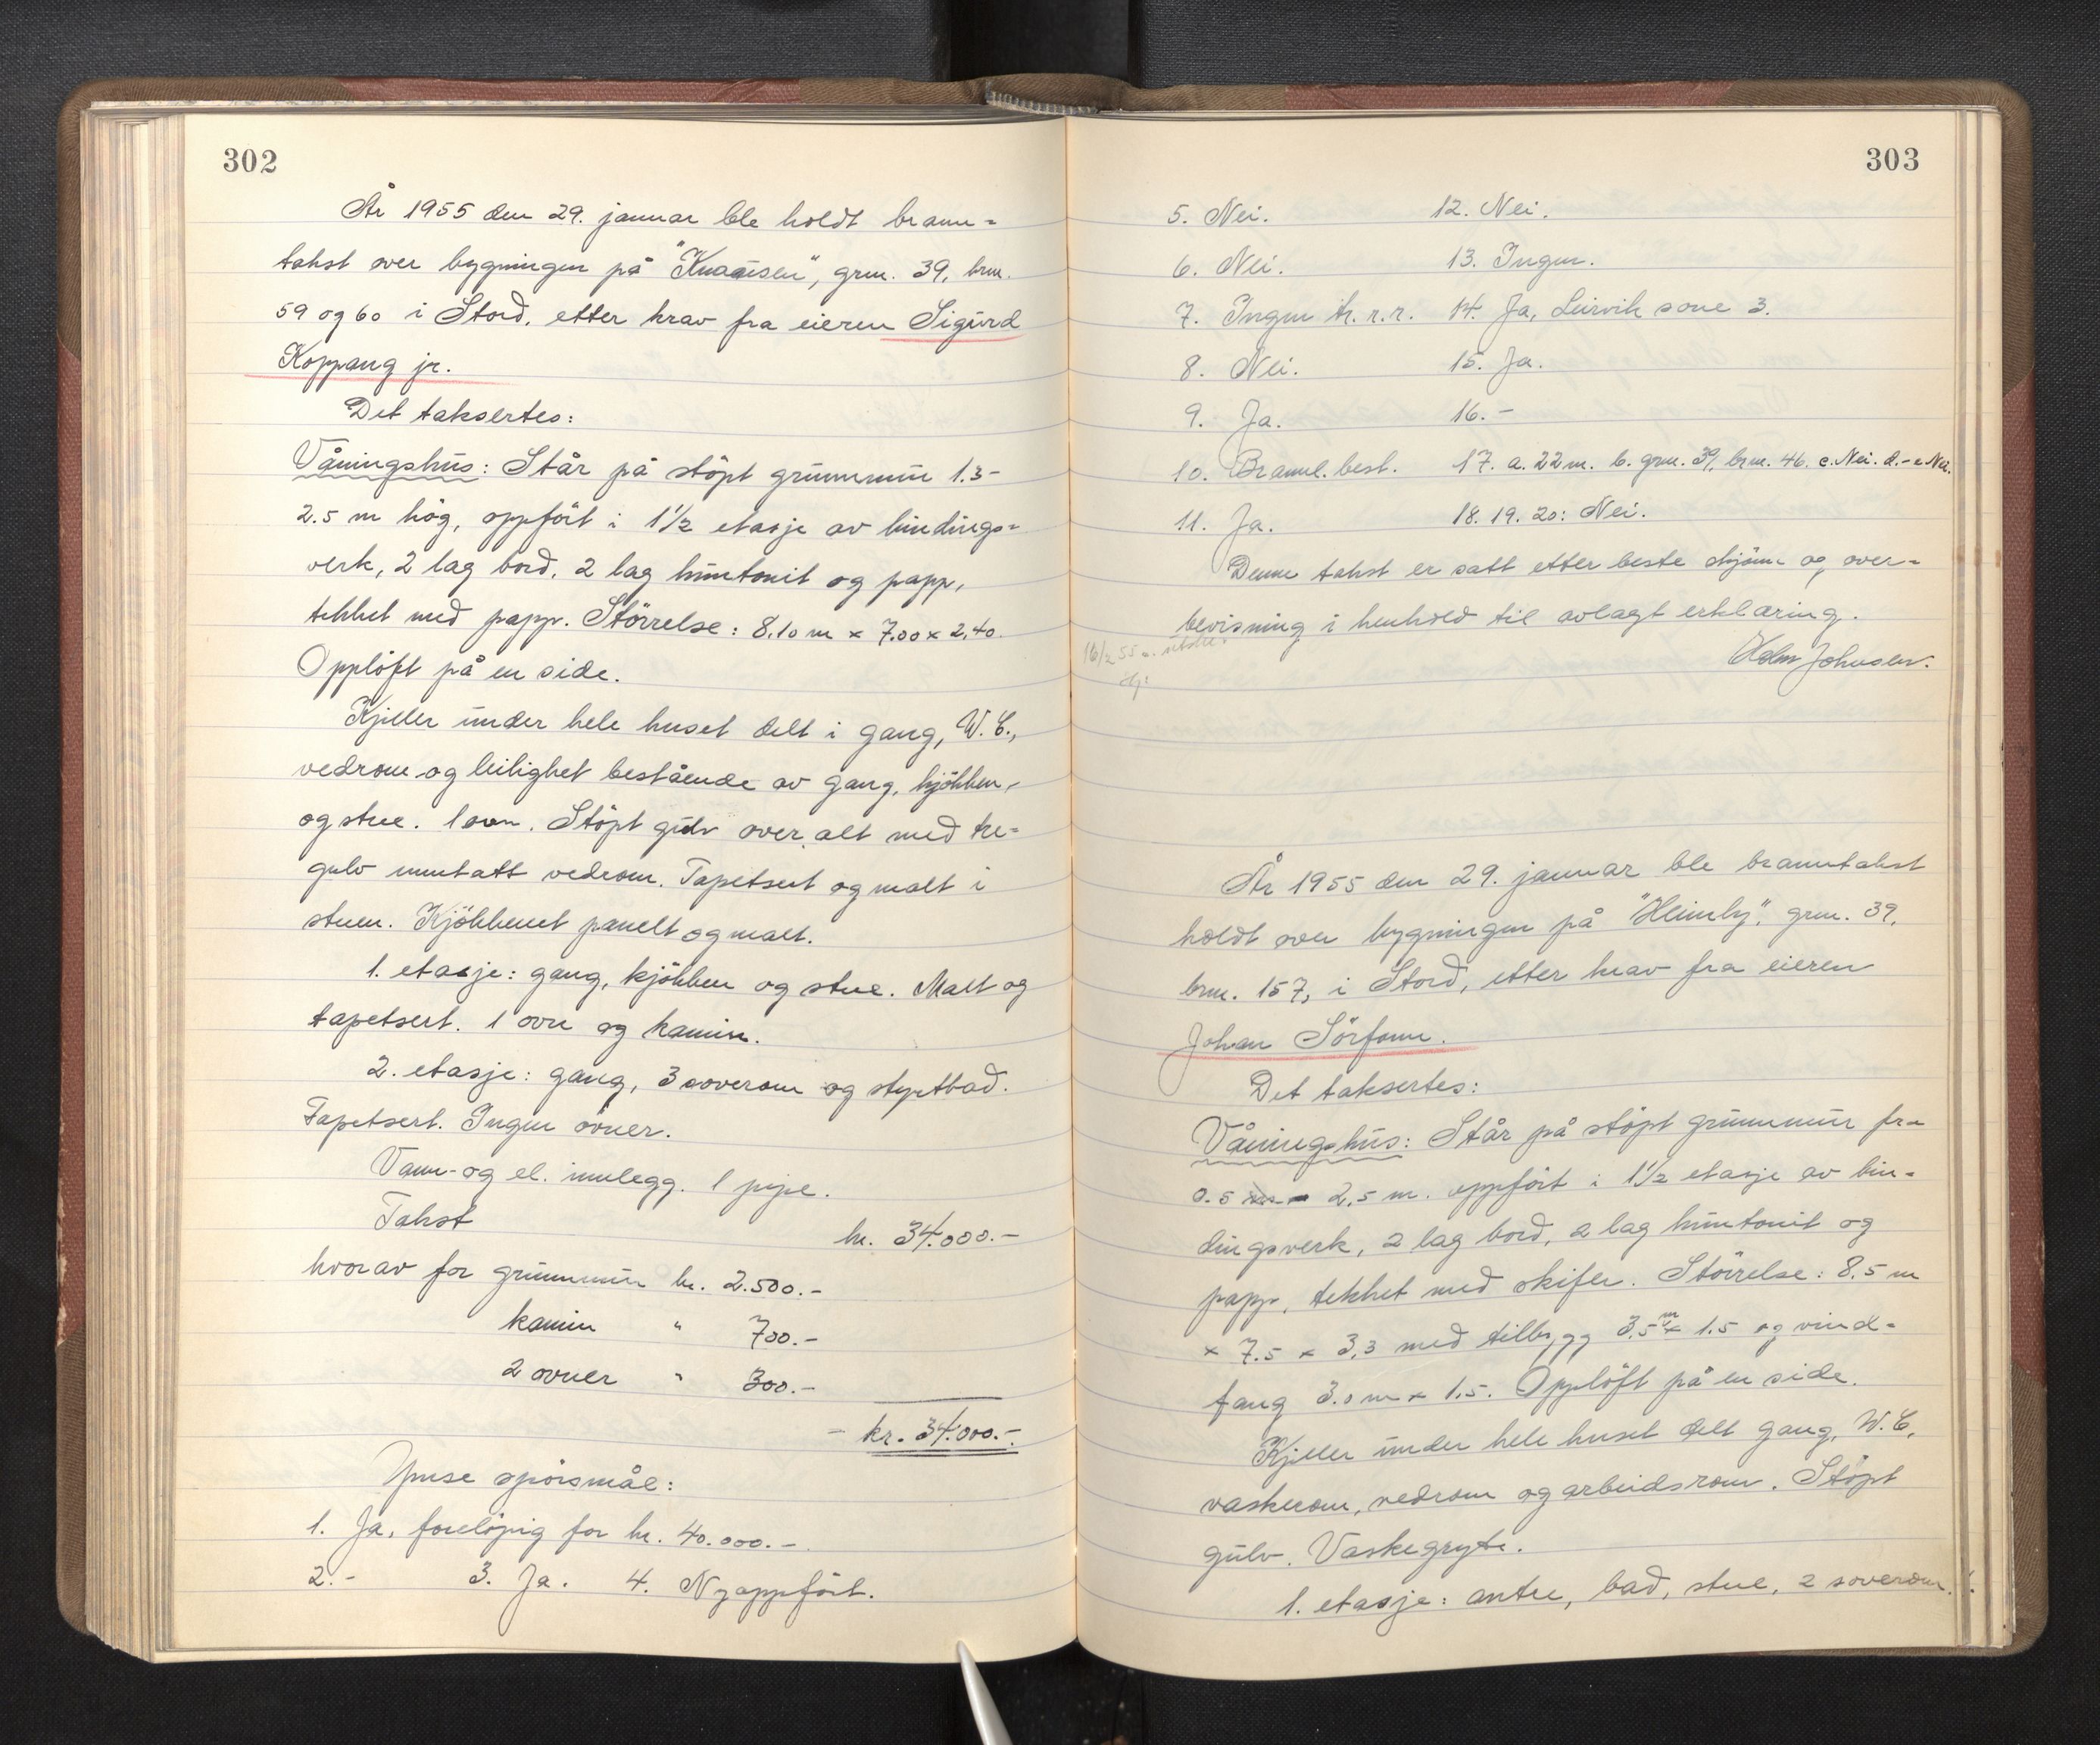 302
År 1955 den 29. januar ble holdt brann=
takst over bygningen på "Knausen", grnr. 39, brnr.
59 og 60 i Stord, etter krav fra eieren Sigurd
Koppang jr.
Det taksertes:
Våningshus: Står på stöpt grunnmur 1.3-
2.5 m hög, oppfört i 1½ etasje av bindings=
verk, 2 lag bord, 2 lag huntonit og papp,
tekket med papp. Störrelse: 8.10 m x 7.00 x 2.40.
Opplöft på en side.
Kjeller under hele huset delt i gang, W.C.,
vedrom og leilighet bestående av gang, kjökken,
og stue. 1 ovn. Stöpt gulv over alt med tre=
gulv unntatt vedrom. Tapetsert og malt i
stuen. Kjökkenet panelt og malt.
1. etasje: gang, kjökken og stue. Malt og
tapetsert. 1 ovn og kamin.
2. etasje: gang, 3 soverom og styrtbad.
Tapetsert. Ingen ovner.
Vann- og el. innlegg. 1 pipe.
Takst kr. 34.000.-
hvorav for grunnmur kr. 2.500.-
kamin " 700.-
2 ovner " 300.-
- kr. 34.000.-
Ymse spörsmål:
1. Ja, forelöpig for kr. 40.000.-
2.- 3. Ja. 4. Nyoppfört.
303
5. Nei. 12. Nei.
6. Nei. 13. Ingen.
7. Ingen tr. r.r. 14. Ja, Leirvik sone 3.
8. Nei. 15. Ja.
9. Ja. 16.-
10. Brannl. best. 17. a. 22 m. b. grnr. 39, brnr. 46. c. Nei. d.- e Nei.
11. Ja. 18. 19. 20: Nei.
Denne takst er satt etter beste skjönn og over=
bevisning i henhold til avlagt erklæring.
16/2 55
Johnsen.
År 1955 den 29. januar ble branntakst
holdt over bygningen på "Heimly", grnr. 39,
brnr. 157, i Stord, etter krav fra eieren
Johan Sörfonn.
Det taksertes:
Våningshus: Står på stöpt grunnmur fra
0.5 - 2,5 m. oppfört i 1½ etasje av bin=
dingsverk, 2 lag bord, 2 lag huntonit og
papp, tekket med skifer. Störrelse: 8.5 m
x 7.5 x 3,3 med tilbygg 3,5 m x 1.5 og vind=
fang 3.0 m x 1.5. Opplöft på en side.
Kjeller under hele huset delt gang, W.C,
vaskerom, vedrom og arbeidsrom. Stöpt
gulv. Vaskegryte.
1. etasje: antre, bad, stue, 2 soverom.